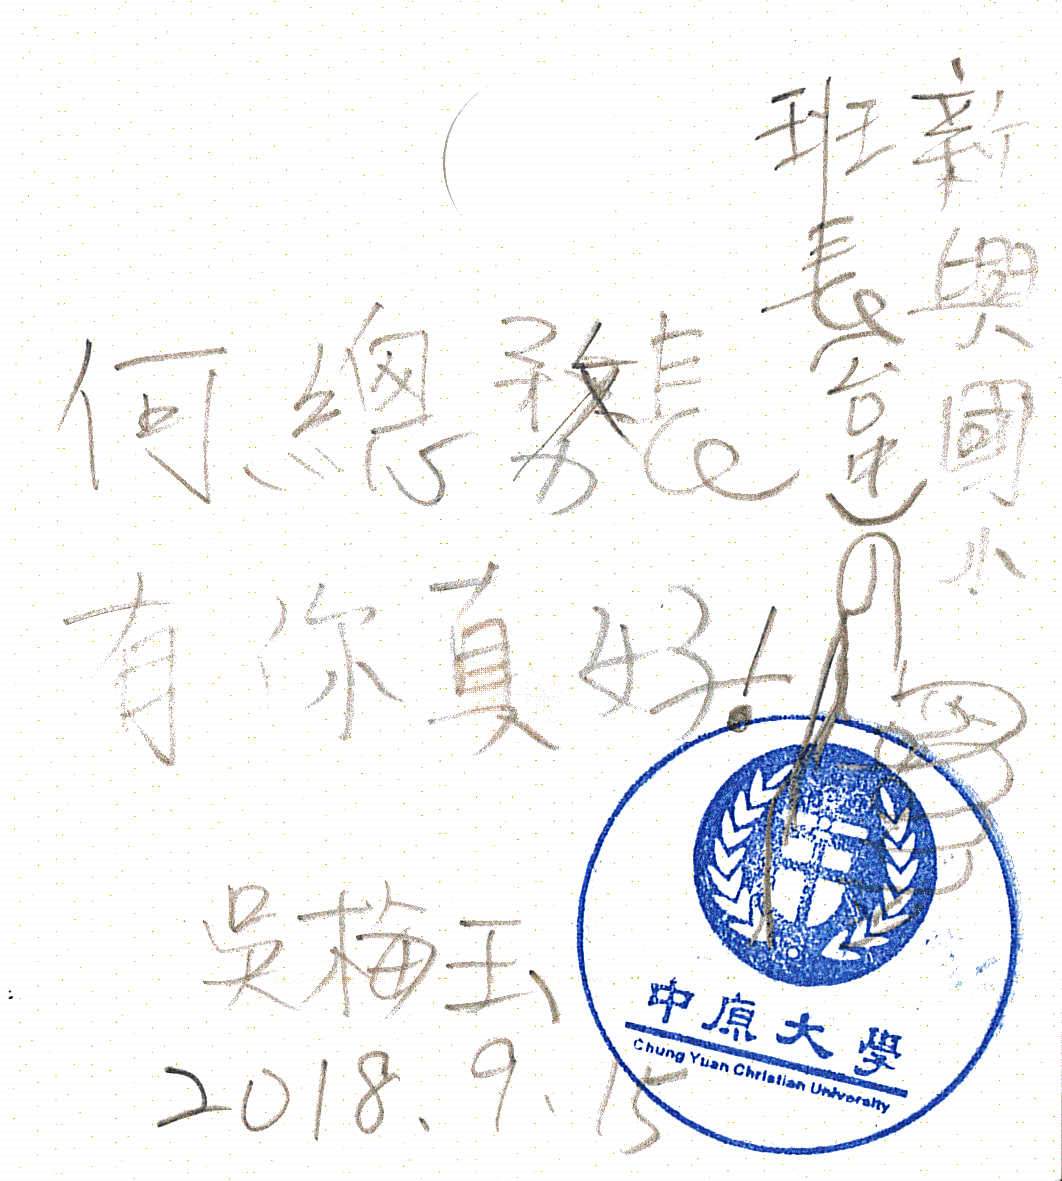 新興國小
班長
何總務長
有你真好!
吳梅玉
2018.9.15
中原大學
Chung Yuan Christian University